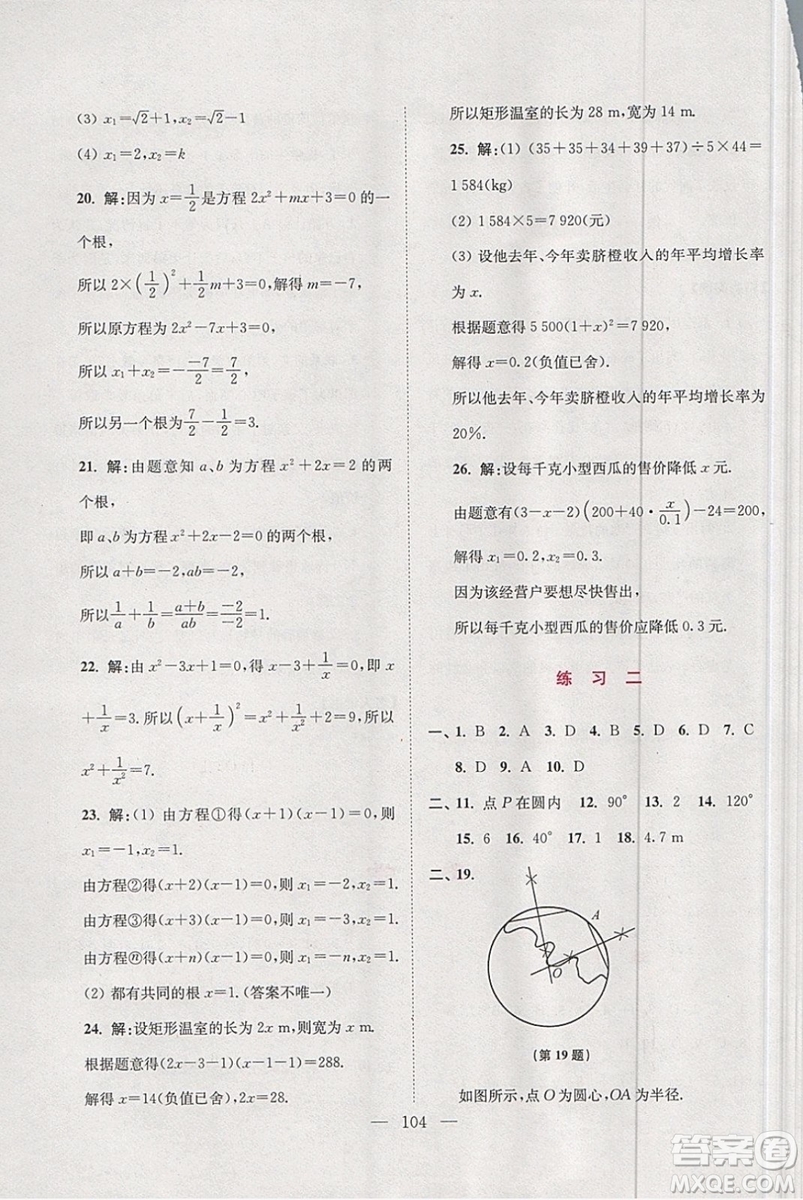 (3) x₁=√2+1,x₂=√2-1
(4) x₁=2,x₂=k
20. 解:因为 x=1/2是方程 2x²+mx+3=0 的一
个根,
所以 2×(1/2)²+1/2m+3=0.解得 m=-7,
所以原方程为 2x²-7x+3=0,
所以 x₁+x₂=-(-7)/2=7/2,
所以另一个根为7/2-1/2=3.
21. 解:由题意知 a、b 为方程 x²+2x=2 的两
个根,
即 a、b 为方程 x²+2x-2=0 的两个根,
所以 a+b=-2,ab=-2,
所以1/a+1/b=(a+b)/(ab)=(-2)/(-2)=1.
22. 解:由 x²-3x+1=0,得 x-3+1/x=0,即 x
+1/x=3.所以(x+1/x)²=x²+1/x²+2=9,则
x²+1/x²=7.
23. 解:(1) 由方程①得(x+1)(x-1)=0,则
x₁=-1,x₂=1.
由方程②得(x+2)(x-1)=0,则 x₁=-2,x₂=1.
由方程③得(x+3)(x-1)=0,则 x₁=-3,x₂=1.
由方程ⓝ得(x+n)(x-1)=0,则 x₁=-n,x₂=1.
(2) 都有共同的根 x=1.(答案不唯一)
24. 解:设矩形温室的长为 2x m,则宽为 x m.
根据题意得(2x-3-1)(x-1-1)=288.
解得 x=14(负值已舍),
所以矩形温室的长为 28 m,宽为 14 m.
25. 解:(1) (35+35+34+39+37)÷5×44=
1 584(kg)
(2) 1 584×5=7 920(元)
(3) 设他去年、今年卖脐橙收入的年平均增长率
为 x.
根据题意得 5 500(1+x)²=7 920,
解得 x=0.2(负值已舍).
所以他去年、今年卖脐橙收入的年平均增长率为
20%.
26. 解:设每千克小型西瓜的售价降低 x 元.
由题意有(3-x-2)(200+40·x/0.1)-24=200,
解得 x₁=0.2,x₂=0.3.
因为该经营户要想尽快售出,
所以每千克小型西瓜的售价应降低 0.3 元.
练 习 二
一、1. B 2. A 3. D 4. B 5. D 6. D 7. C
8. D 9. A 10. D
二、11. 点 P 在圆内 12. 90° 13. 2 14. 120°
15. 6 16. 40° 17. 1 18. 4.7 m
二、19.
A
O
(第 19 题)
如图所示,点 O 为圆心,OA 为半径.
— 104 —
答案圈
MXQE.COM